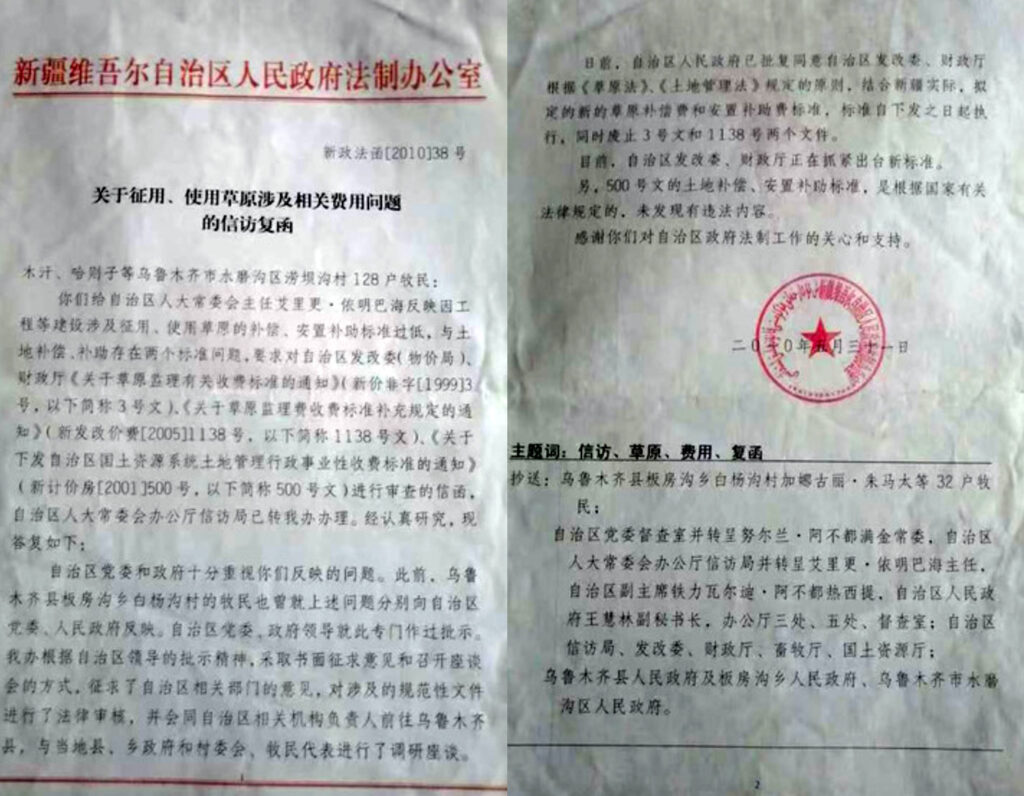 新疆维吾尔自治区人民政府法制办公室
新政法函[2010]38号
关于征用、使用草原涉及相关费用问题
的信访复函
木汗、哈则子等乌鲁木齐市水磨沟区涝坝沟村128户牧民：
你们给自治区人大常委会主任艾里更·依明巴海反映因工
程等建设涉及征用、使用草原的补偿、安置补助标准过低，与土
地补偿、补助存在两个标准问题，要求对自治区发改委(物价局)、
财政厅《关于草原监理有关收费标准的通知》(新价非字[1999]3
号，以下简称3号文)、《关于草原监理费收费标准补充规定的通
知》(新发改价费[2005]1138号，以下简称1138号文)、《关于
下发自治区国土资源系统土地管理行政事业性收费标准的通知》
(新计价房[2001]500号，以下简称500号文)进行审查的信函，
自治区人大常委会办公厅信访局已转我办办理。经认真研究，现
答复如下：
自治区党委和政府十分重视你们反映的问题。此前，乌鲁
木齐县板房沟乡白杨沟村的牧民也曾就上述问题分别向自治区
党委、人民政府反映。自治区党委、政府领导就此专门作过批示。
我办根据自治区领导的批示精神，采取书面征求意见和召开座谈
会的方式，征求了自治区相关部门的意见，对涉及的规范性文件
进行了法律审核，并会同自治区相关机构负责人前往乌鲁木齐
县，与当地县、乡政府和村委会、牧民代表进行了调研座谈。
1
日前，自治区人民政府已批复同意自治区发改委、财政厅
根据《草原法》、《土地管理法》规定的原则，结合新疆实际，拟
定的新的草原补偿费和安置补助费标准，标准自下发之日起执
行，同时废止3号文和1138号两个文件。
目前，自治区发改委、财政厅正在抓紧出台新标准。
另，500号文的土地补偿、安置补助标准，是根据国家有关
法律规定的，未发现有违法内容。
感谢你们对自治区政府法制工作的关心和支持。
二〇一〇年五月三十一日
主题词：信访、草原、费用、复函
抄送：乌鲁木齐县板房沟乡白杨沟村加娜古丽·朱马太等32户牧
民；
自治区党委督查室并转呈努尔兰·阿不都满金常委，自治区
人大常委会办公厅信访局并转呈艾里更·依明巴海主任，
自治区副主席铁力瓦尔迪·阿不都热西提，自治区人民政
府王慧林副秘书长，办公厅三处、五处、督查室；自治区
信访局、发改委、财政厅、畜牧厅、国土资源厅；
乌鲁木齐县人民政府及板房沟乡人民政府、乌鲁木齐市水磨
沟区人民政府。
2